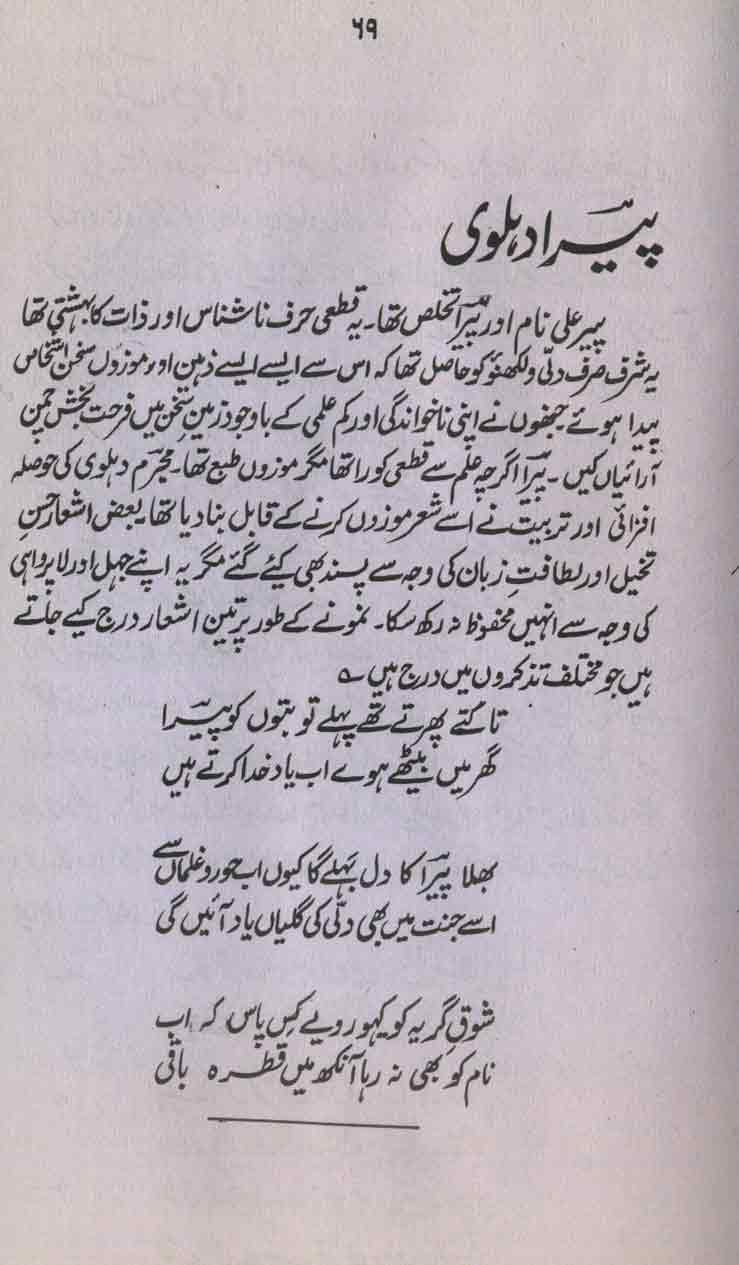 ۶۹
پیرا دہلوی
پیر علی نام اور پیراؔ تخلص تھا۔ یہ قطعی حرف ناشناس اور ذات کا بہشتی تھا
یہ شرف صرف دلّی و لکھنؤ کو حاصل تھا کہ اس سے ایسے ایسے ذہین اور موزوں سخن اشخاص
پیدا ہوئے جنھوں نے اپنی ناخواندگی اور کم علمی کے باوجود زمینِ سخن میں فرحت بخش چمن
آرائیاں کیں۔ پیراؔ اگرچہ علم سے قطعی کورا تھا مگر موزوں طبع تھا۔ مجرمؔ دہلوی کی حوصلہ
افزائی اور تربیت نے اسے شعر موزوں کرنے کے قابل بنا دیا تھا۔ بعض اشعار حسنِ
تخیل اور لطافتِ زبان کی وجہ سے پسند بھی کیے گئے مگر یہ اپنے جہل اور لاپرواہی
کی وجہ سے انہیں محفوظ نہ رکھ سکا۔ نمونے کے طور پر تین اشعار درج کیے جاتے
ہیں جو مختلف تذکروں میں درج ہیں۔ ؎
تاکتے پھرتے تھے پہلے تو بتوں کو پیراؔ
گھر میں بیٹھے ہوے اب یاد خدا کرتے ہیں
بھلا پیراؔ کا دل بہلے گا کیوں اب حور و غلماں سے
اسے جنت میں بھی دلّی کی گلیاں یاد آئیں گی
شوقِ گریہ کو کہو رویے کس پاس کہ اب
نام کو بھی نہ رہا آنکھ میں قطرہ باقی